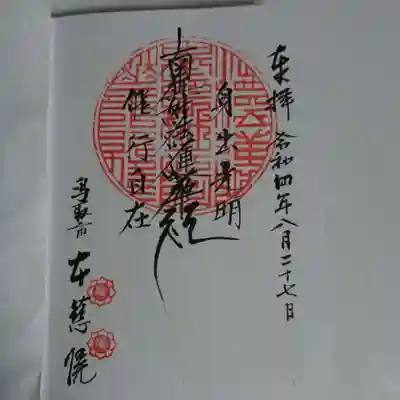 奉拝 令和四年八月二十七日
身出光明
南無妙法蓮華経
飛行自在
鳥取市 本慈院